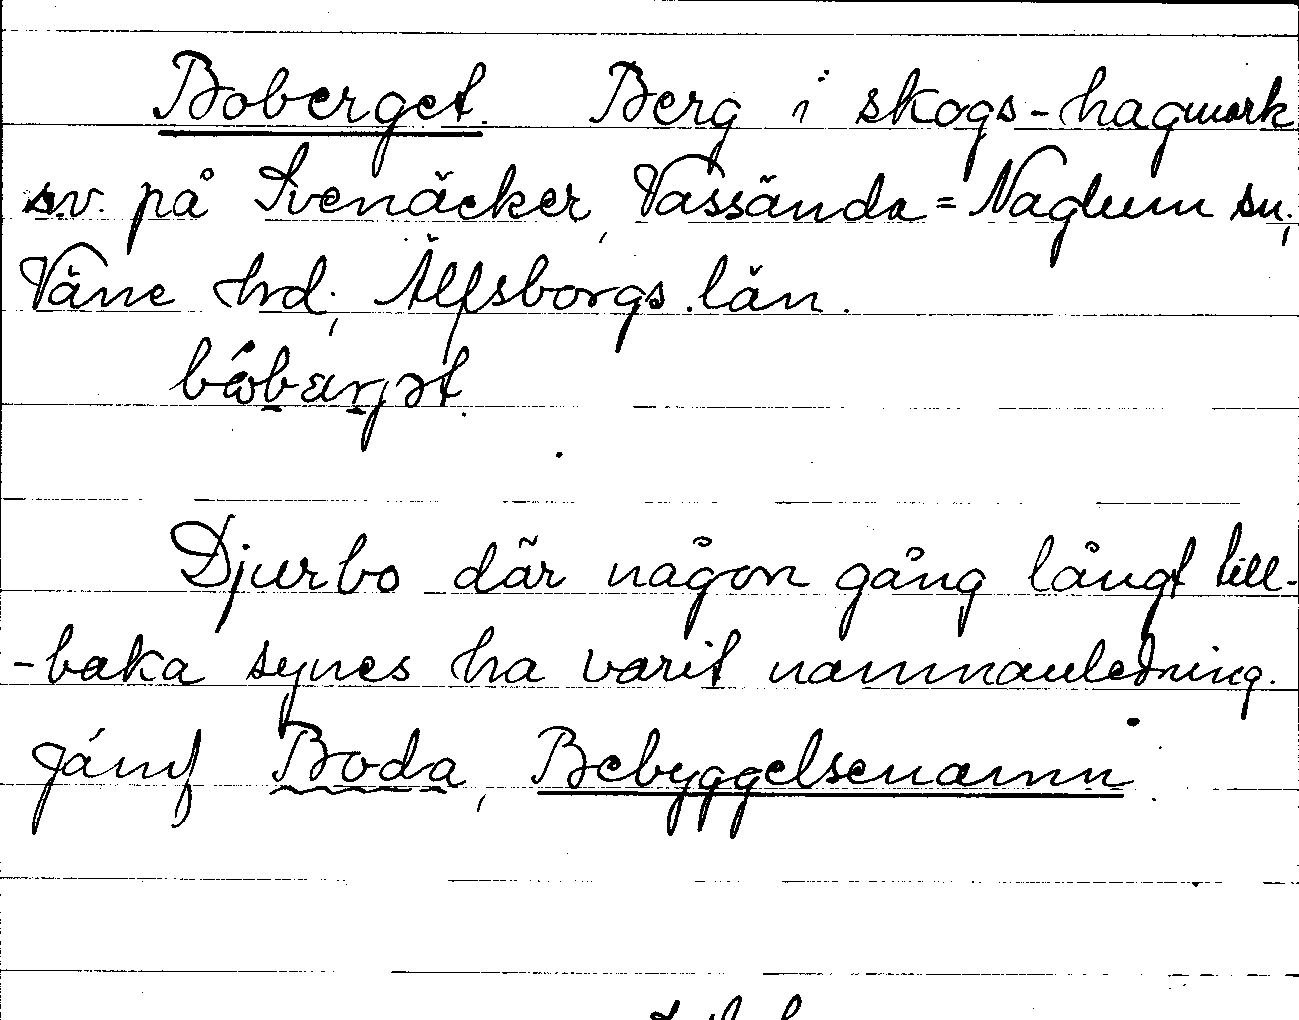 Boberget. Berg i skogs-hagmark
sv. på Svenäcker, Vassända=Naglum sn;
Väne hrd; Älfsborgs län.
Djurbo där någon gång långt till-
-baka synes ha varit namnanledning.
Jämf Boda, Bebyggelsenamn.